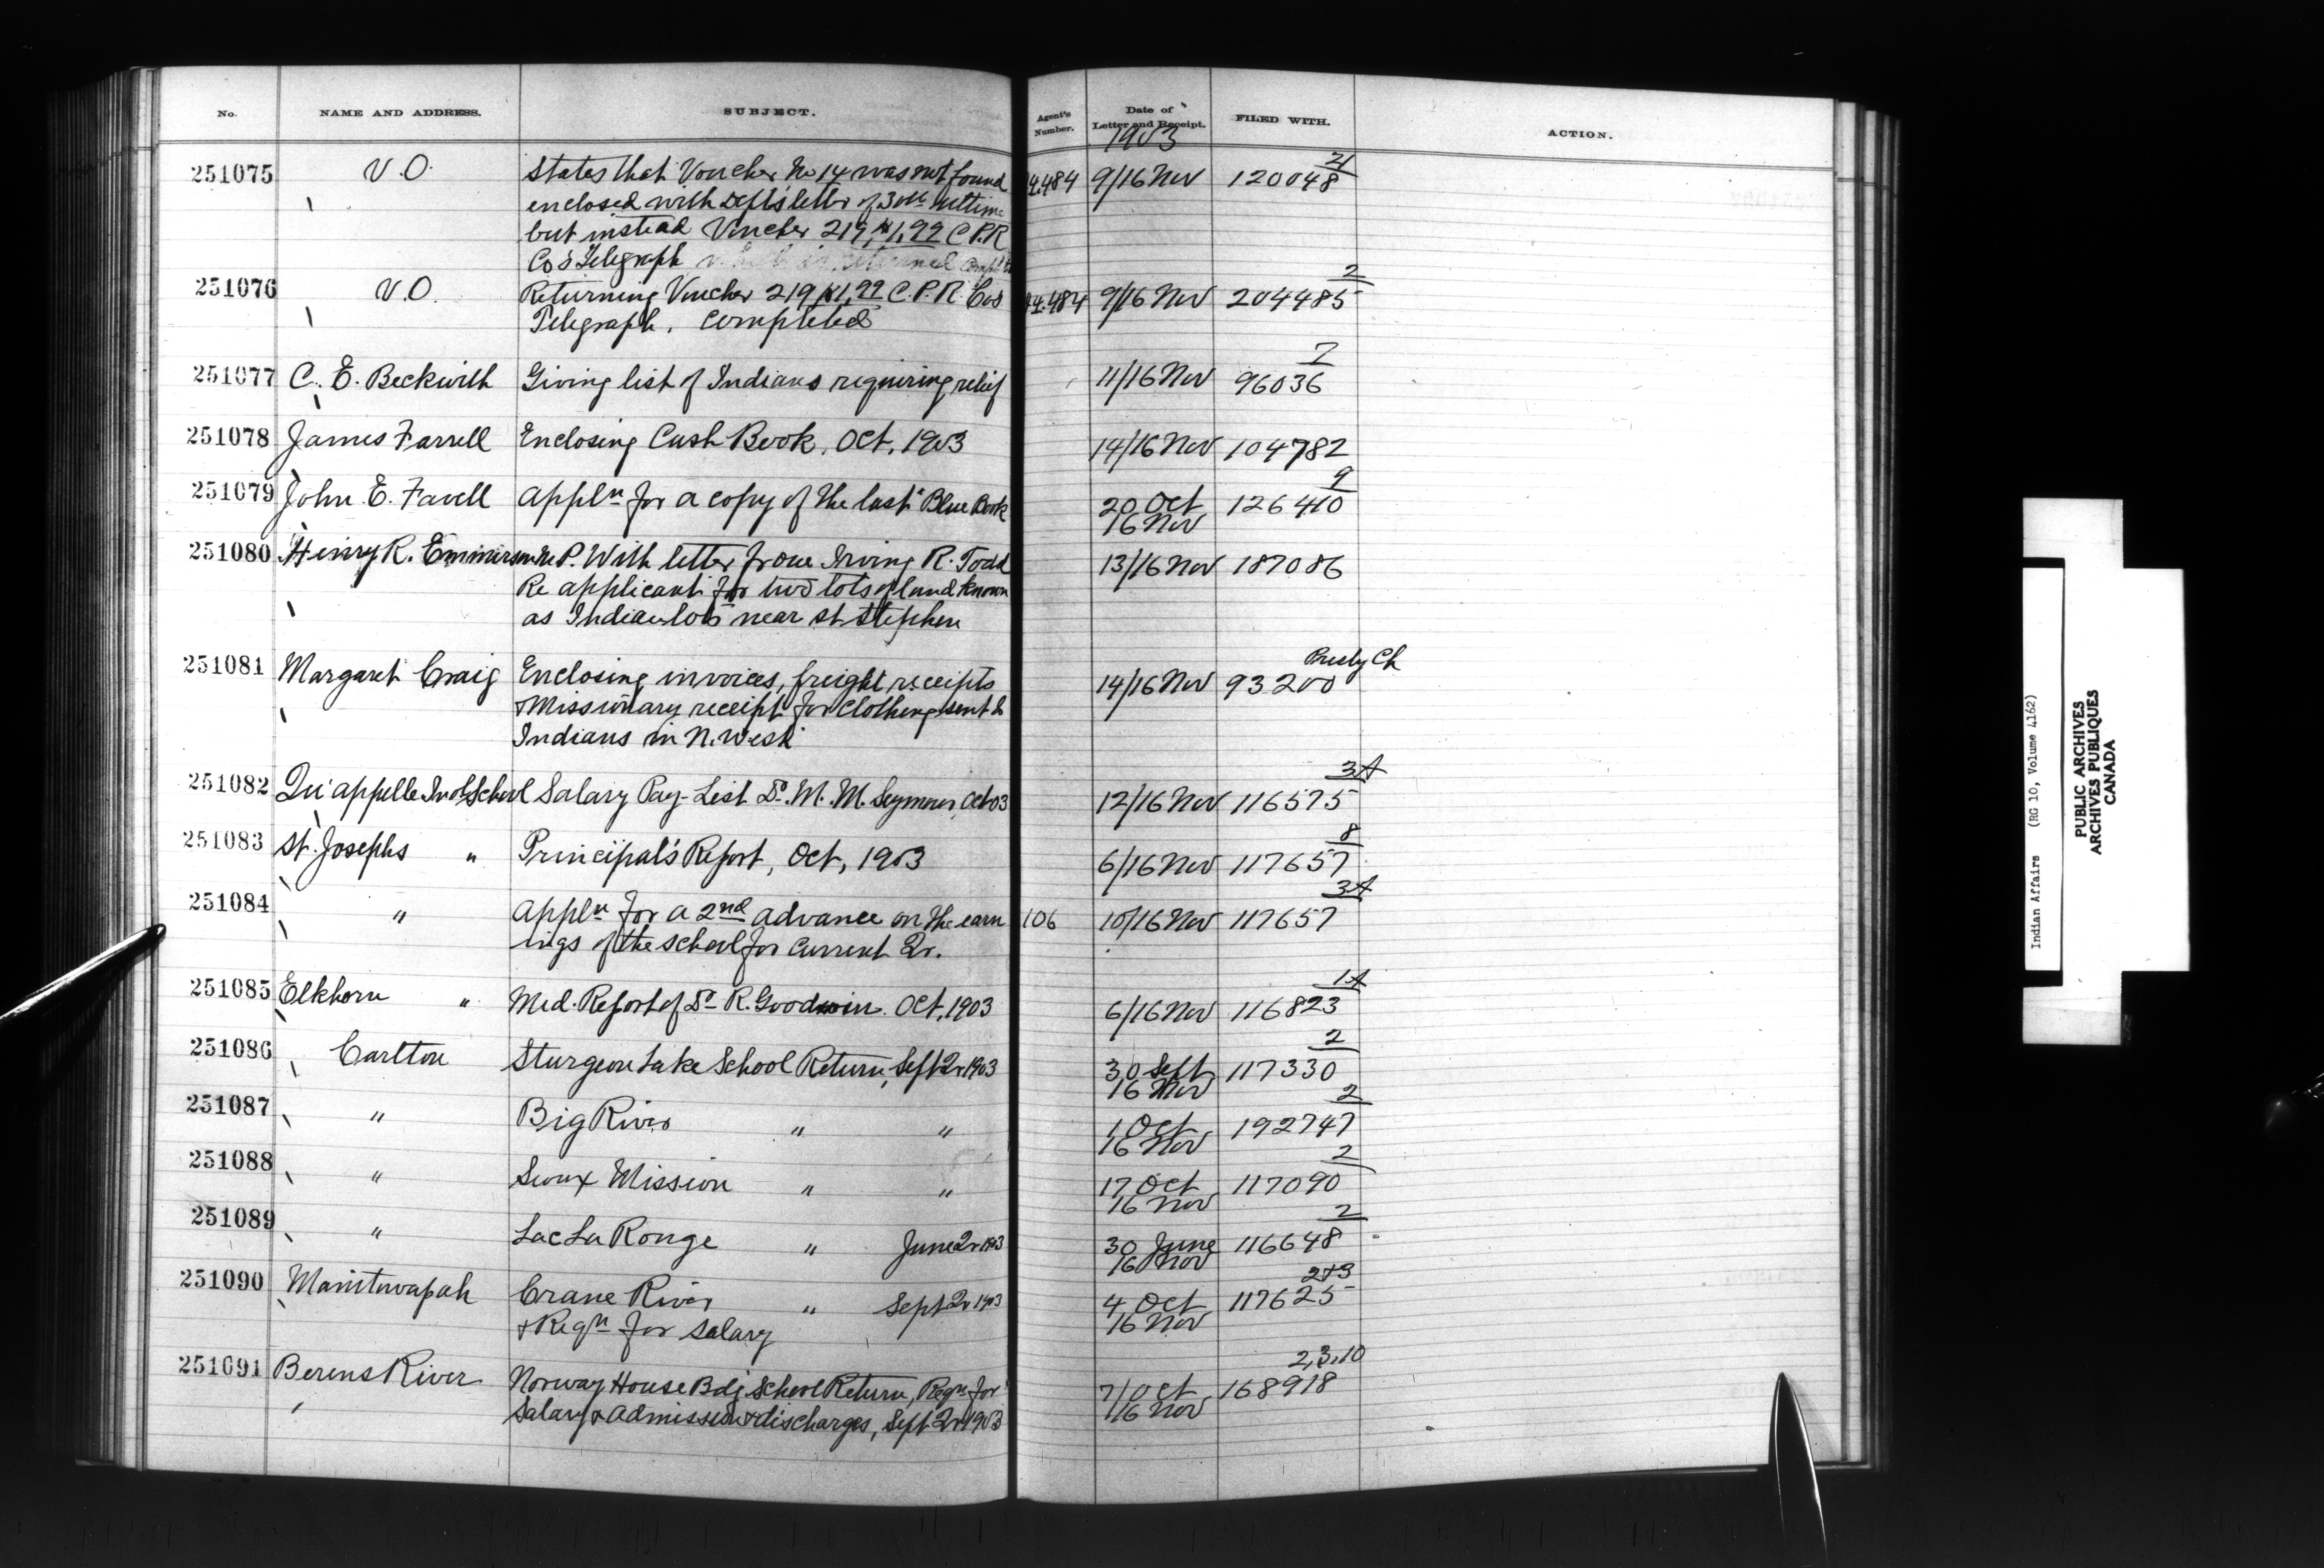 No. NAME AND ADDRESS. SUBJECT. Agent's Number. Date of Letter and Receipt. FILED WITH. ACTION.
1903
2
251075 V.O. States that Voucher No 14 was not found 4.484 9/16 Nov 120048
enclosed with Dept's letter of 30th ultimo
but instead Voucher 219, $1.99 C.P.R
Co's Telegraph which is returned
2
251076 V.O. Returning Voucher 219 $1.99 C.P.R. Cos 4.484 9/16 Nov 204485
Telegraph, completed
7
251077 C. E. Beckwith Giving list of Indians requiring relief 11/16 Nov 96036
251078 James Farrell Enclosing Cash Book, Oct, 1903 14/16 Nov 104782
9
251079 John E. Favell Appln for a copy of the last "Blue Book 20 Oct 126410
16 Nov
251080 Henry R. Emmerson M.P. With letter from Irving R. Todd 13/16 Nov 187086
Re applicant for two lots of land known
as Indian lots near St Stephen
Presby Ch
251081 Margaret Craig Enclosing invoices, freight receipts 14/16 Nov 93200
& Missionary receipt for clothing sent to
Indians in N. West
3A
251082 Qu'appelle Indl School Salary Pay-List Dr. M. M. Seymour, Oct 03 12/16 Nov 116575
8
251083 St. Josephs " Principal's Report, Oct, 1903 6/16 Nov 117657
3A
251084 " Appln for a 2nd advance on the earn 106 10/16 Nov 117657
ings of the school for current Qr.
1A
251085 Elkhorn " Med. Report of Dr R. Goodwin. Oct, 1903 6/16 Nov 116823
2
251086 Carlton Sturgeon Lake School Return, Sept Qr 1903 30 Sept 117330
16 Nov
2
251087 " Big River " " 1 Oct 192747
16 Nov
2
251088 " Sioux Mission " " 17 Oct 117090
16 Nov
2
251089 " Lac La Ronge " June Qr 1903 30 June 116648
16 Nov
2+3
251090 Manitowapah Crane River " Sept Qr 1903 4 Oct 117625
& Reqn for salary 16 Nov
2,3,10
251091 Berens River Norway House Bdg School Return, Reqn for 7/Oct 168918
Salary & Admission & discharges, Sept Qr 1903 16 Nov
Indian Affairs (RG 10, Volume 4162)
PUBLIC ARCHIVES
ARCHIVES PUBLIQUES
CANADA